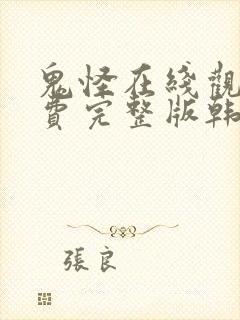 鬼怪在綫觀
費完整版韩
張良